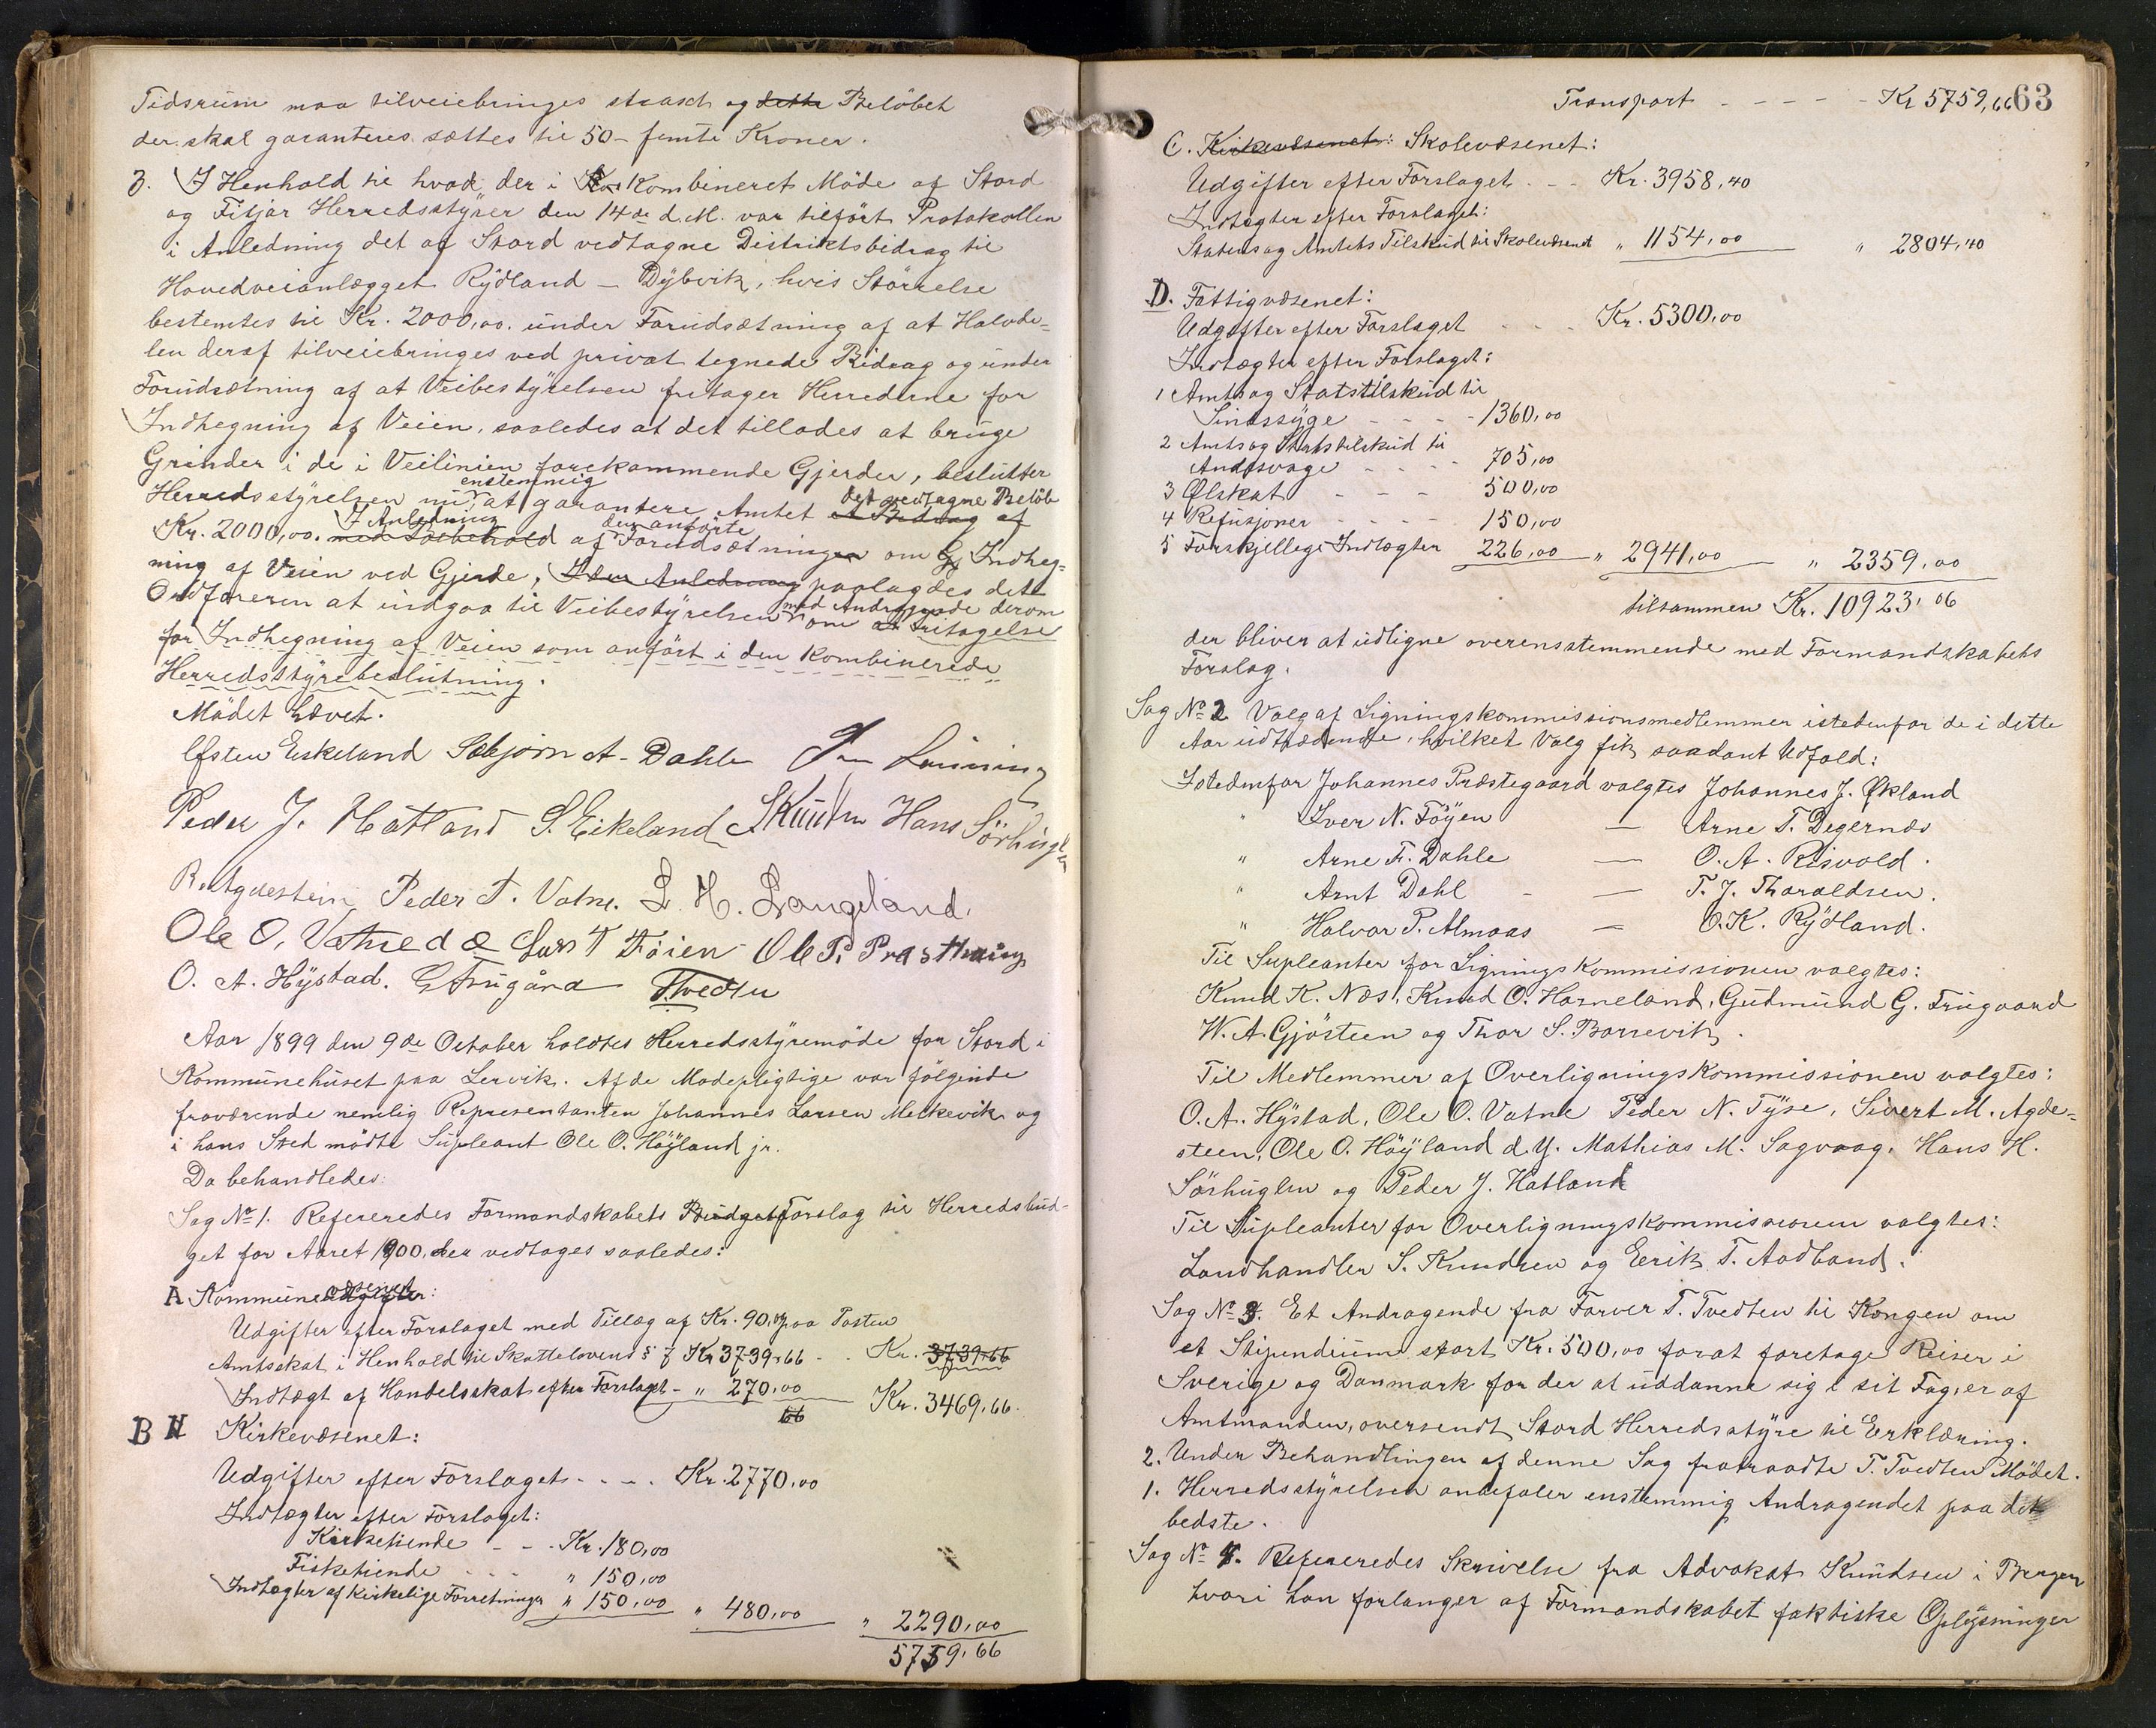 Tidsrum maa tilveiebringes strax og dette Beløbet
der skal garanteres sættes til 50 - femti Kroner.
3. I Henhold til hvad der i Kombineret Møde af Stord
og Fitjar Herredsstyrer den 14de d.M. var tilført Protokollen
i Anledning det af Stord vedtagne Distriktsbidrag til
Hovedveianlægget Rydland - Dybvik, hvis Størrelse
bestemtes til Kr. 2000,00. under Forudsætning af at Halvde-
len deraf tilveiebringes ved privat tegnede Bidrag og under
Forudsætning af at Veibestyrelsen fritager Herrederne for
Indhegning af Veien, saaledes at det tillades at bruge
Grinder i de i Veilinien forekommende Gjerder, beslutter
enstemmig
Herredsstyrelsen at garantere Amtet det vedtagne Beløb
Kr. 2000,00. I Anledning af den anførte Forudsætningen om Indheg-
ning af Veien ved Gjerde, I den Anledning paalagdes det
Ordføreren at indgaa til Veibestyrelsen med Andragende derom om Fritagelse
for Indhegning af Veien som anført i den Kombinerede
Herredsstyrebeslutning.
Mødet hævet.
Østen Eskeland Sæbjørn A. Dahle Lønning
Peder J. Hatland S. Eikeland S Knutsen Hans Sørhuglen
R. Agdestein Peder T. Vatne. L. H. Langeland.
Ole O. Vatne d æ Lars T Føien Ole P. Præsthaug
O. A. Hystad. G Frugård T. Tvedten
Aar 1899 den 9de October holdtes Herredsstyremøde for Stord i
Kommunehuset paa Lervik. Af de Mødepligtige var følgende
fraværende nemlig Representanten Johannes Larsen Melkevik og
i hans Sted mødte Supleant Ole O. Høyland jr.
Da behandledes:
Sag No 1. Refereredes Formandskabets Budget Forslag til Herredsbud-
get for Aaret 1900, der vedtages saaledes:
A Kommunevæsenet:
Udgifter efter Forslaget med Tillæg af Kr. 90,00 paa Posten
Amtsskat i Henhold til Skattelovens § 7 Kr 3739,66 - . Kr. 3739,66
Indtægt af Handelsskat efter Forslaget - " 270,00 Kr. 3469,66.
66
B N Kirkevæsenet:
Udgifter efter Forslaget - - - . Kr. 2770,00
Indtægter efter Forslaget:
Kirketiende - - - Kr. 180,00
Fisketiende - - - " 150,00
Indtægter af Kirkelige Forretninger " 150,00 " 480,00 " 2290,00
5759,66
Transport - - - - - Kr 5759,66 63
C. Kirkevæsenet: Skolevæsenet:
Udgifter efter Forslaget . - - Kr. 3958,40
Indtægter efter Forslaget:
Statens og Amtets Tilskud til Skolevæsenet " 1154,00 " 2804,40
D. Fattigvæsenet:
Udgifter efter Forslaget - - - Kr. 5300,00
Indtægter efter Forslaget:
1 Amts og Statstilskud til
Sindssyge - - - - 1360,00
2 Amts og Statstilskud til
Andssvage - - - - 705,00
3 Ølskat - - - 500,00
4 Refusjoner - - - - 150,00
5 Forskjellige Indtægter 226,00 " 2941,00 " 2359,00
tilsammen Kr. 10923,06
der bliver at udligne overensstemmende med Formandskabets
Forslag.
Sag No 2. Valg af Ligningskommissionsmedlemmer istedenfor de i dette
Aar udtrædende, hvilket Valg fik saadant Udfald:
Istedenfor Johannes Præstegaard valgtes Johannes J. Økland
" Iver N. Føyen — Arne T. Digernæs
" Arne Fr. Dahle — O. A. Risvold.
" Arnt Dahl - — T. J. Tharaldsen.
" Halvor P. Almaas — O. K. Rydland.
Til Supleanter for Lignings Kommissionen valgtes:
Knud K. Næs, Knud O. Horneland, Gudmund G. Frugaard
W. A. Gjøsteen og Thor S. Børrevik.
Til Medlemmer af Overlignings Kommissionen valgtes:
O. A. Hystad, Ole O. Vatne Peder N. Tyse, Sivert M. Agde-
steen, Ole O. Høyland d.y. Mathias M. Sagvaag, Hans H.
Sørhuglen og Peder J. Hatland
Til Supleanter for Overlignings Kommissionen valgtes:
Landhandler S. Knudsen og Eerik T. Aadland.
Sag No 3. Et Andragende fra Farver T. Tvedten til Kongen om
et Stipendium stort Kr. 500,00 forat foretage Reiser i
Sverige og Danmark for der at uddanne sig i sit Fag, er af
Amtmanden, oversendt Stord Herredsstyre til Erklæring.
2. Under Behandlingen af denne Sag fratraadte T. Tvedten Mødet.
1. Herredsstyrelsen anbefaler enstemmig Andragendet paa det
bedste.
Sag No 4. Refereredes Skrivelse fra Advokat Knudsen i Bergen
hvori han forlanger af Formandskabet faktiske Oplysninger